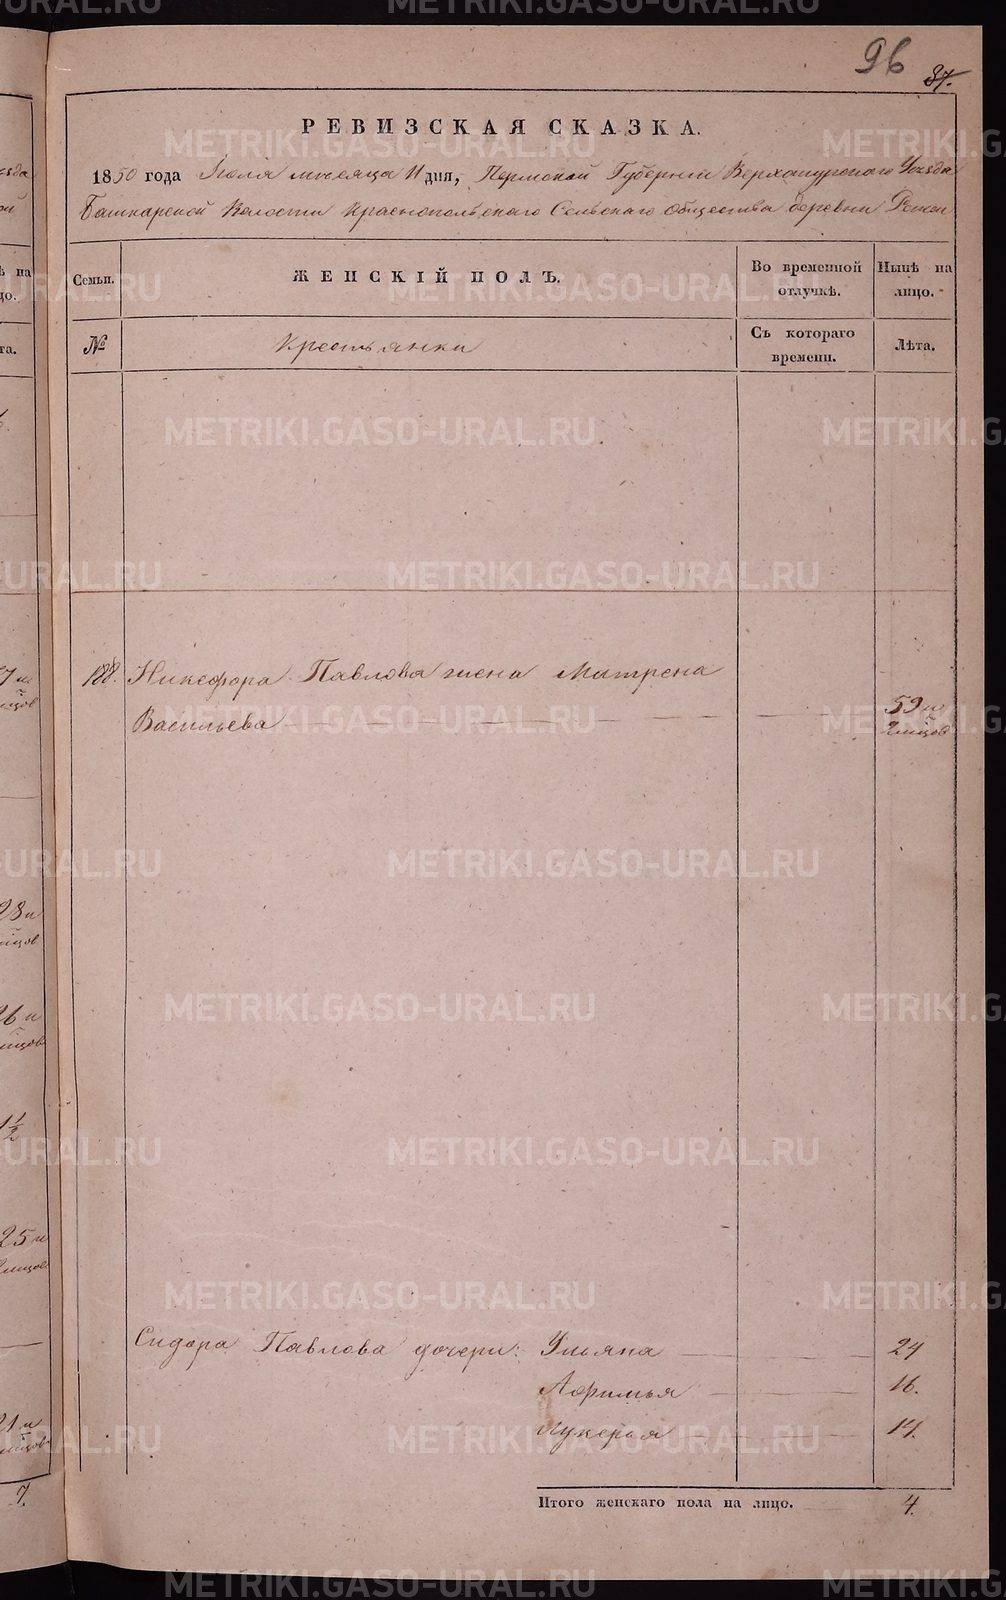 96 37.
РЕВИЗСКАЯ СКАЗКА.
1850 года Іюля месяца 11 дня, Пермской Губерніи Верхотурскаго Уезда
Башкарской Волости Краснопольскаго Сельскаго Общества деревни
Семьи. ЖЕНСКІЙ ПОЛЪ. Во временной отлучкѣ. Нынѣ на лицо.
№ Крестьянки Съ котораго времени. Лѣта.
188. Никифора Павлова жена Матрена
Васильева 59 и
2 мѣсяцов
Сидора Павлова дочери: Ульяна 24
Афимья 16.
Лукерья 14.
Итого женскаго пола на лицо. 4.
METRIKI.GASO-URAL.RU